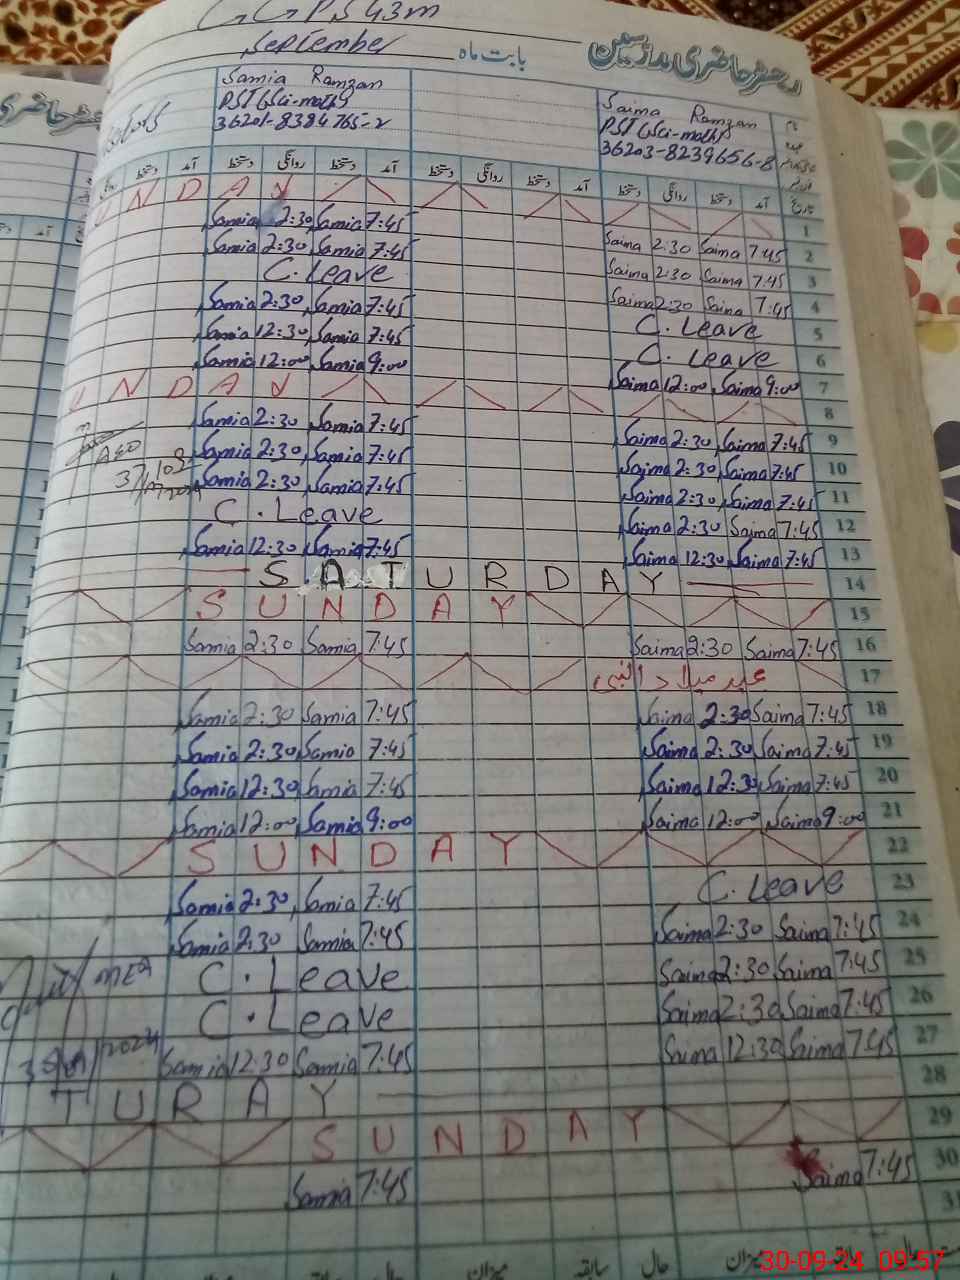 GGPS 43m
September بابت ماہ رجسٹر حاضری مدرسین
Samia Ramzan
PST (Sci-math)
36201-8384765-2
Saima Ramzan
PST (Sci-math)
36203-8239656-8
دستخط آمد دستخط روانگی دستخط آمد دستخط روانگی دستخط آمد دستخط روانگی دستخط آمد تاریخ
UNDAY 1
Samia 2:30 Samia 7:45 Saima 2:30 Saima 7:45 2
Samia 2:30 Samia 7:45 Saima 2:30 Saima 7:45 3
C. Leave Saima 2:30 Saima 7:45 4
Samia 2:30 Samia 7:45 C. Leave 5
Samia 12:30 Samia 7:45 C. Leave 6
Samia 12:00 Samia 9:00 Saima 12:00 Saima 9:00 7
UNDAY 8
Samia 2:30 Samia 7:45 Saima 2:30 Saima 7:45 9
AEO Samia 2:30 Samia 7:45 Saima 2:30 Saima 7:45 10
Samia 2:30 Samia 7:45 Saima 2:30 Saima 7:45 11
C. Leave Saima 2:30 Saima 7:45 12
Samia 12:30 Samia 7:45 Saima 12:30 Saima 7:45 13
SATURDAY 14
SUNDAY 15
Samia 2:30 Samia 7:45 Saima 2:30 Saima 7:45 16
عید میلاد النبی 17
Samia 2:30 Samia 7:45 Saima 2:30 Saima 7:45 18
Samia 2:30 Samia 7:45 Saima 2:30 Saima 7:45 19
Samia 12:30 Samia 7:45 Saima 12:30 Saima 7:45 20
Samia 12:00 Samia 9:00 Saima 12:00 Saima 9:00 21
SUNDAY 22
Samia 2:30 Samia 7:45 C. Leave 23
Samia 2:30 Samia 7:45 Saima 2:30 Saima 7:45 24
MEA C. Leave Saima 2:30 Saima 7:45 25
C. Leave Saima 2:30 Saima 7:45 26
2024 Samia 12:30 Samia 7:45 Saima 12:30 Saima 7:45 27
TURAY 28
SUNDAY 29
Samia 7:45 Saima 7:45 30
31
میزان حال سابقہ میزان حال
30-09-24 09:57